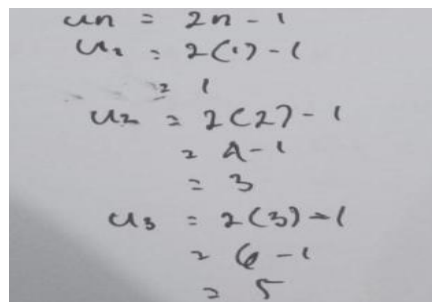 un = 2n - 1
u1 = 2(1) - 1
= 1
u2 = 2(2) - 1
= 4 - 1
= 3
u3 = 2(3) - 1
= 6 - 1
= 5